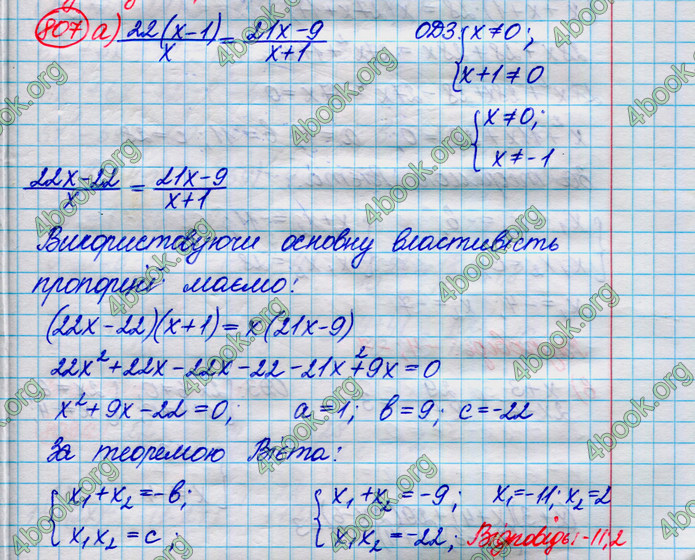 807 а) 22(x-1)/x = 21x-9/x+1 ОДЗ { x≠0;
x+1≠0
{ x≠0;
x≠-1
22x-22/x = 21x-9/x+1
Використовуючи основну властивість
пропорції маємо:
(22x-22)(x+1)=x(21x-9)
22x²+22x-22x-22-21x²+9x=0
x²+9x-22=0; a=1; в=9; c=-22
За теоремою Вієта:
{ x₁+x₂=-в; { x₁+x₂=-9; x₁=-11; x₂=2
x₁x₂=c; x₁x₂=-22; Відповідь: -11; 2
4book.org